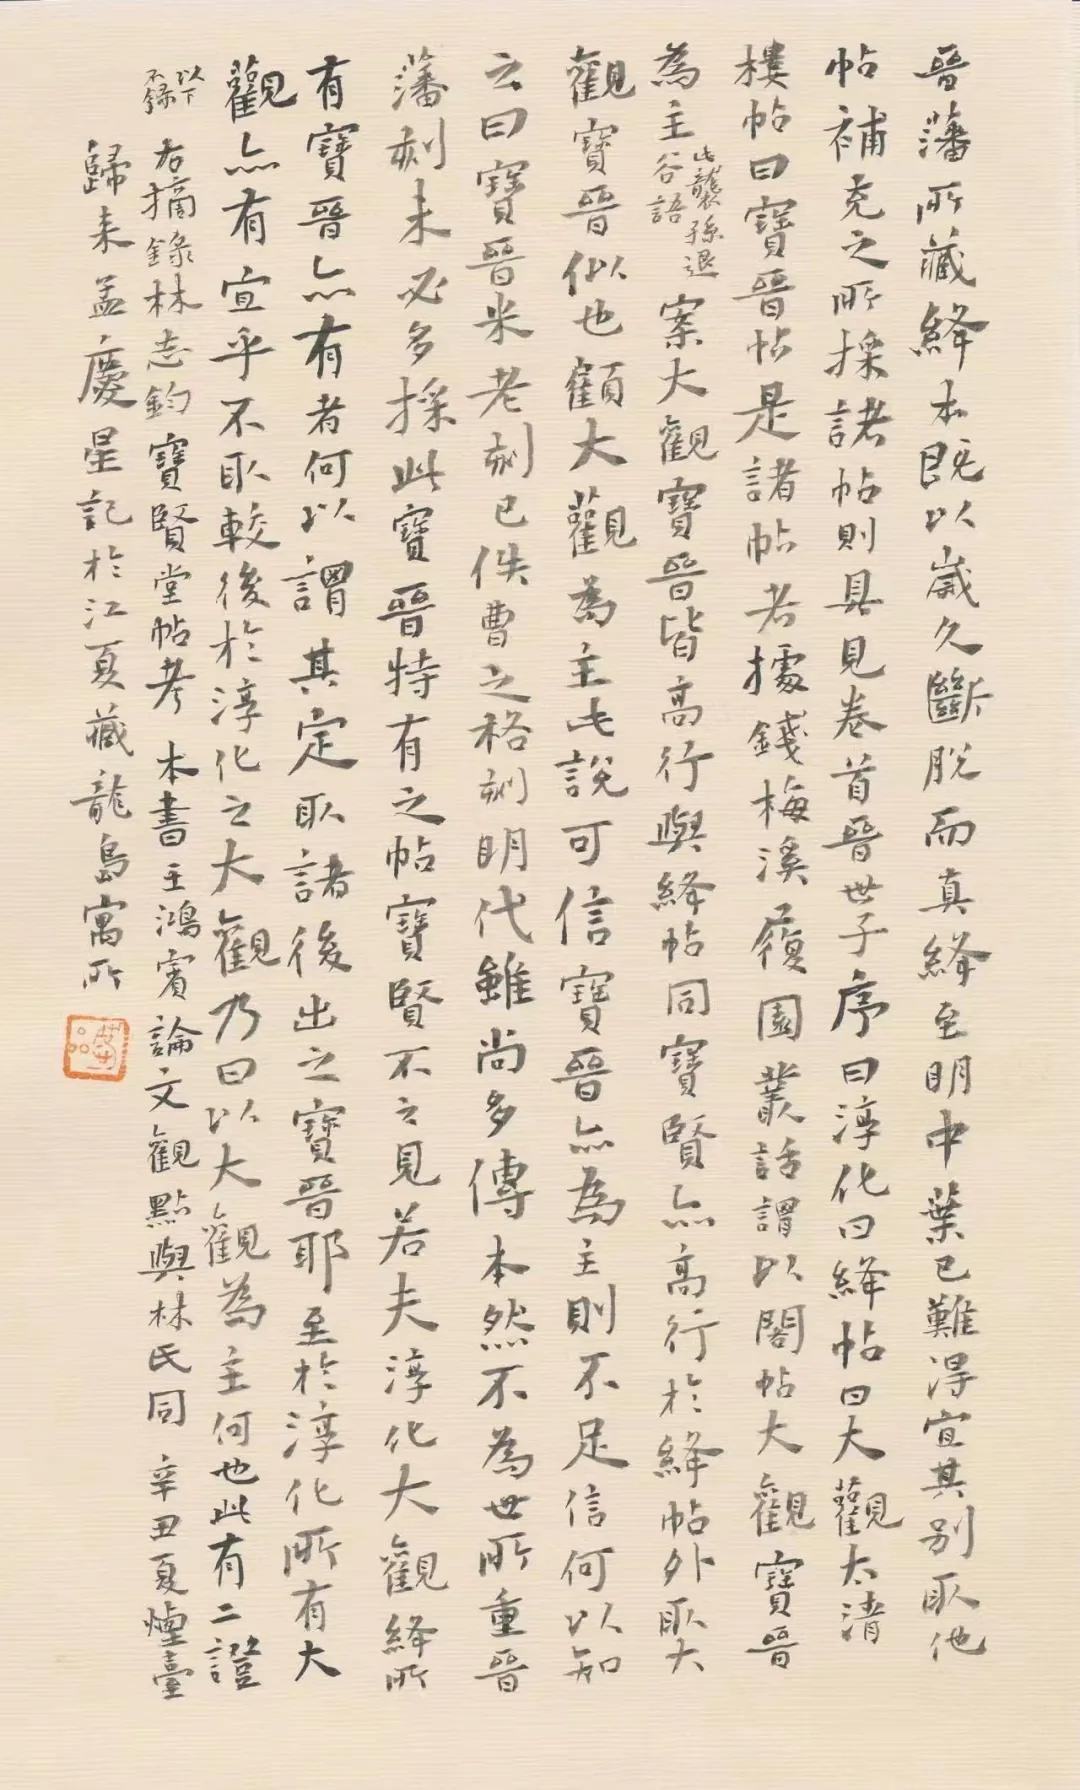 晉藩所藏絳本既以歲久斷脫而真絳至明中葉已難得宜其別取他
帖補充之所採諸帖則具見卷首晉世子序曰淳化曰絳帖曰大觀太清
樓帖曰寶晉帖是諸帖者據錢梅溪履園叢話謂以閣帖大觀寶晉
為主此襲孫退谷語案大觀寶晉皆高行與絳帖同寶賢亦高行於絳帖外取大
觀寶晉似也顧大觀為主此說可信寶晉亦為主則不足信何以知
之曰寶晉米老刻已佚曹之格刻明代雖尚多傳本然不為世所重晉
藩刻未必多採此寶晉特有之帖寶賢不之見若夫淳化大觀絳所
有寶晉亦有者何以謂其定取諸後出之寶晉耶至於淳化所有大
觀亦有宜乎不取較後於淳化之大觀乃曰以大觀為主何也此有二證
以下不錄 右摘錄林志鈞寶賢堂帖考 本書王鴻賓論文觀點與林氏同 辛丑夏煙臺
歸來孟慶星記於江夏藏龍島寓所